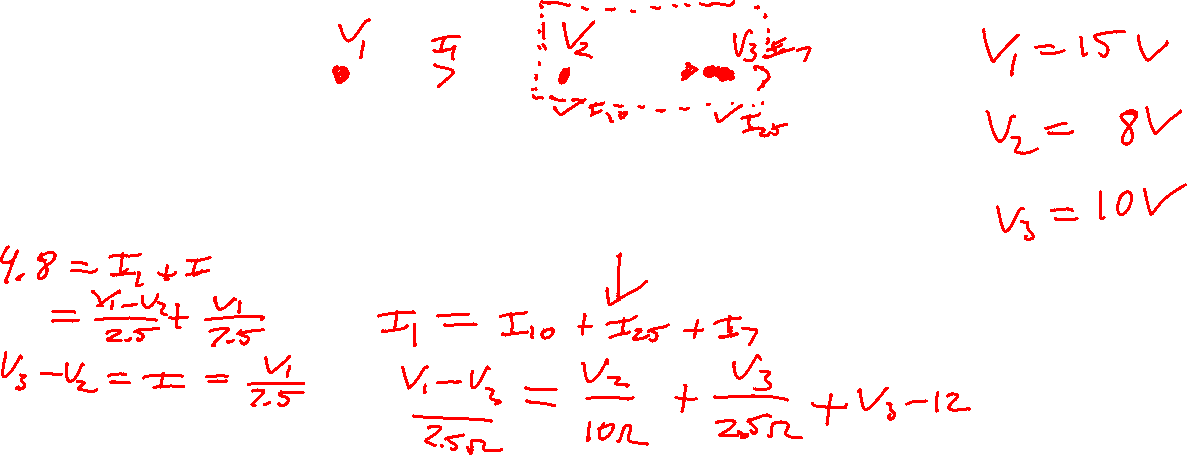 V₁ I₁ V₂ V₃ I₇
I₁₀ I₂₅
V₁ = 15 V
V₂ = 8V
V₃ = 10V
4.8 = I₁ + I
= (V₁-V₂)/2.5 + V₁/7.5
V₃-V₂ = I = V₁/7.5
I₁ = I₁₀ + I₂₅ + I₇
(V₁-V₂)/2.5Ω = V₂/10Ω + V₃/2.5Ω + V₃-12